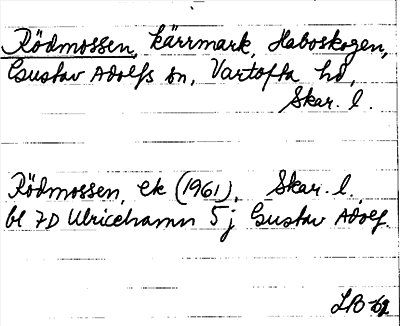 Rödmossen, kärrmark, Haboskogen,
Gustav Adolfs sn, Vartofta hd,
Skar. l.
Rödmossen, ek (1961), Skar. l.
bl 7D Ulricehamn 5j Gustav Adolf.